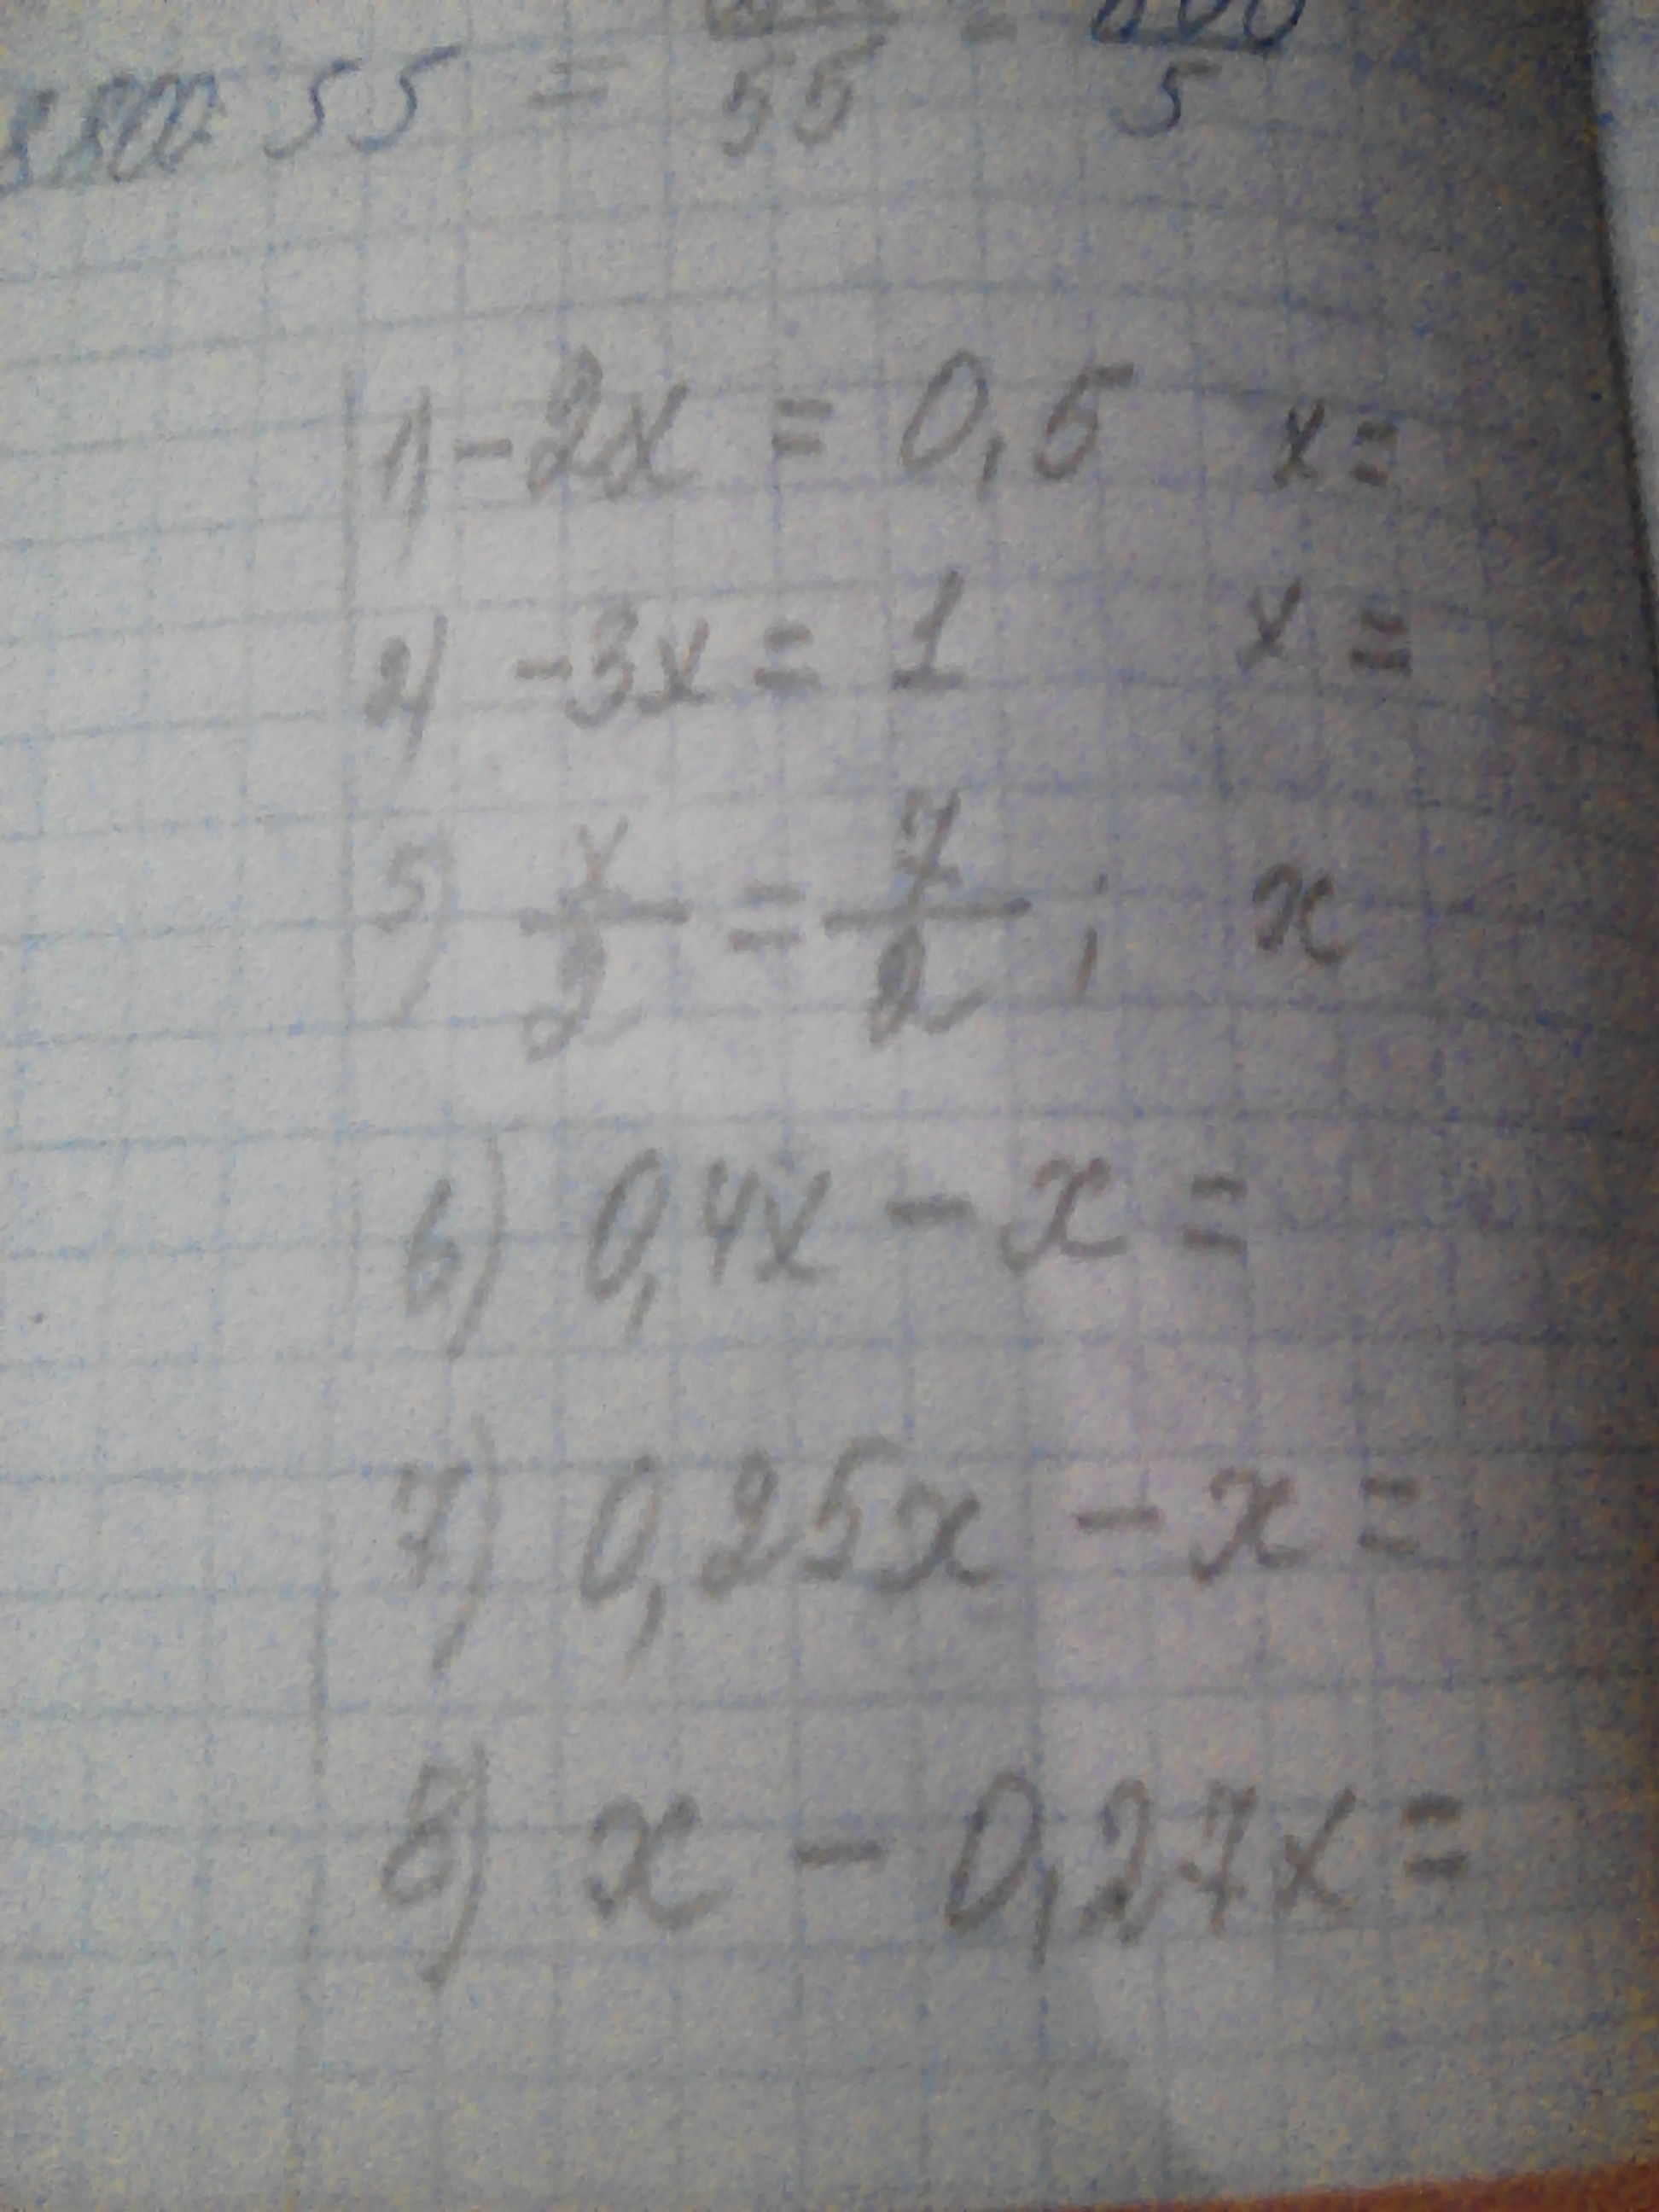 55 = /55 = /5
1) -2x = 0,5 x =
2) -3x = 1 x =
5) x/2 = 7/2 ; x
6) 0,4x - x =
7) 0,25x - x =
8) x - 0,27x =